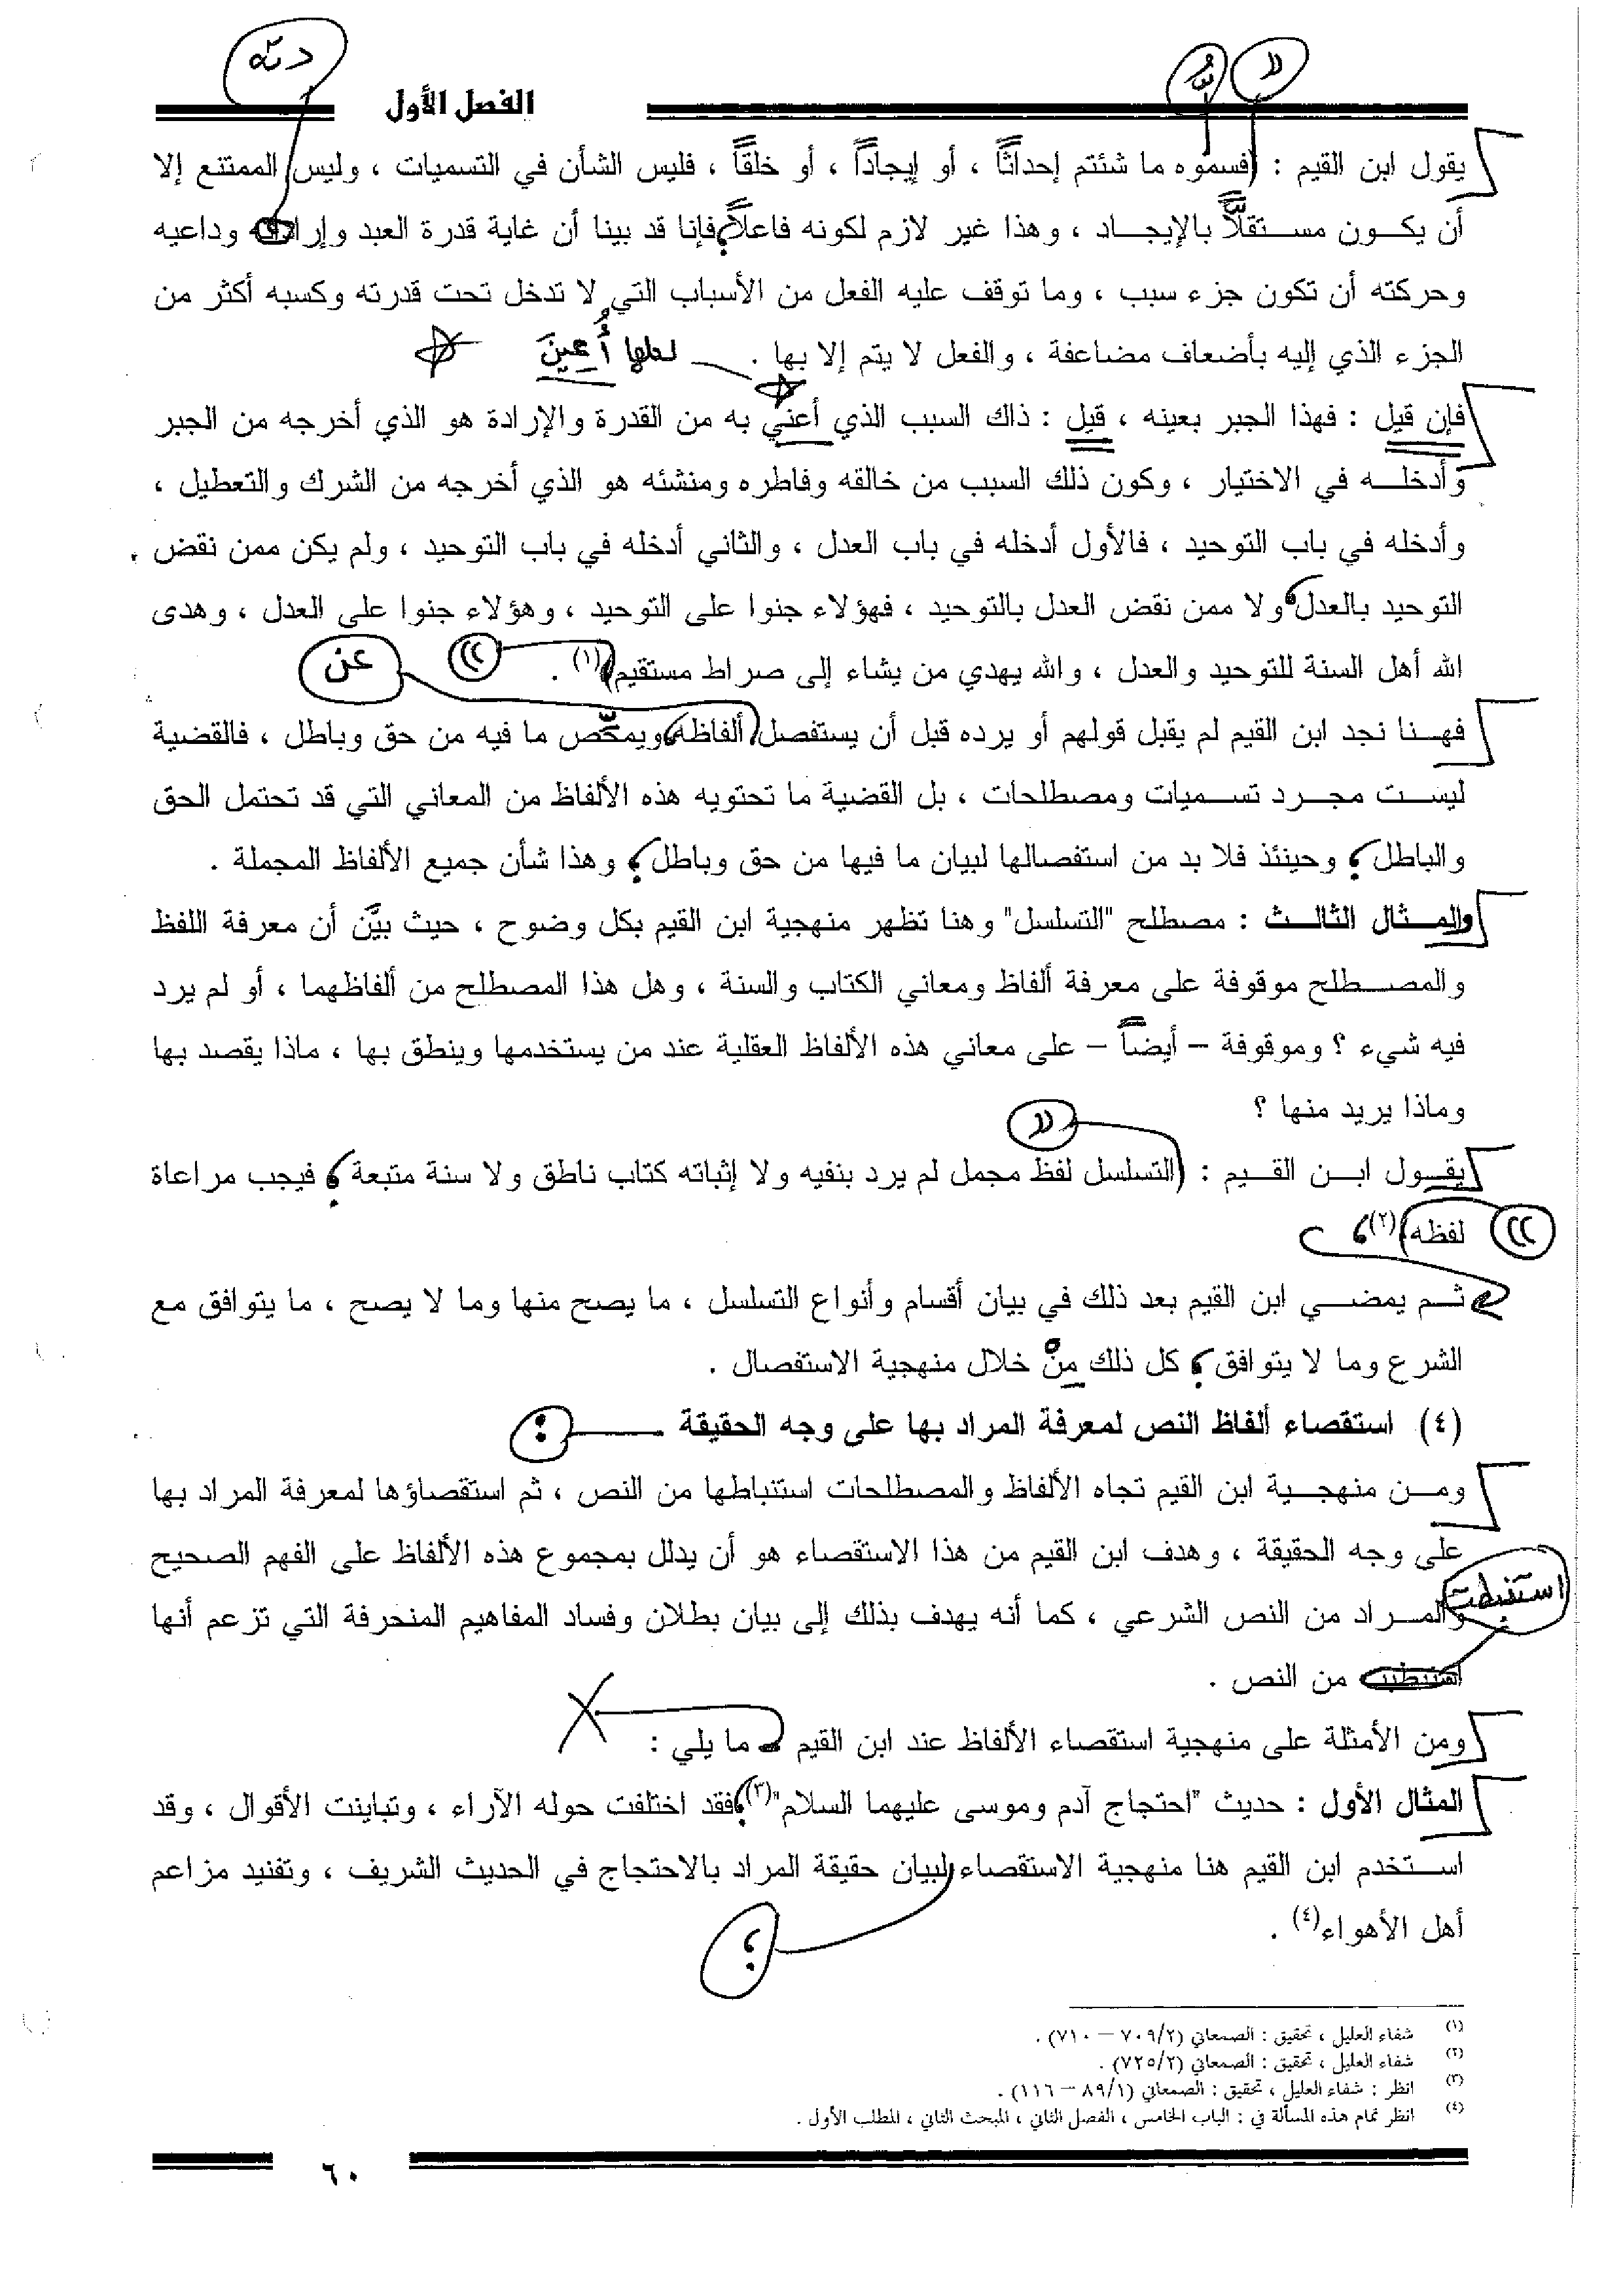 الفصل الأول
يقول ابن القيم : (فسموه ما شئتم إحداثاً ، أو إيجاداً ، أو خلقاً ، فليس الشأن في التسميات ، وليس الممتنع إلا
أن يكون مستقلاً بالإيجاد ، وهذا غير لازم لكونه فاعلاً؛ فإنا قد بينا أن غاية قدرة العبد وإرادته وداعيه
وحركته أن تكون جزء سبب ، وما توقف عليه الفعل من الأسباب التي لا تدخل تحت قدرته وكسبه أكثر من
الجزء الذي إليه بأضعاف مضاعفة ، والفعل لا يتم إلا بها . لعلها أُعِينَ
فإن قيل : فهذا الجبر بعينه ، قيل : ذاك السبب الذي أعني به من القدرة والإرادة هو الذي أخرجه من الجبر
وأدخله في الاختيار ، وكون ذلك السبب من خالقه وفاطره ومنشئه هو الذي أخرجه من الشرك والتعطيل ،
وأدخله في باب التوحيد ، فالأول أدخله في باب العدل ، والثاني أدخله في باب التوحيد ، ولم يكن ممن نقض
التوحيد بالعدل، ولا ممن نقض العدل بالتوحيد ، فهؤلاء جنوا على التوحيد ، وهؤلاء جنوا على العدل ، وهدى
الله أهل السنة للتوحيد والعدل ، والله يهدي من يشاء إلى صراط مستقيم)(١) .
عن
فهنا نجد ابن القيم لم يقبل قولهم أو يرده قبل أن يستفصل ألفاظه، ويمحّص ما فيه من حق وباطل ، فالقضية
ليست مجرد تسميات ومصطلحات ، بل القضية ما تحتويه هذه الألفاظ من المعاني التي قد تحتمل الحق
والباطل؛ وحينئذ فلا بد من استفصالها لبيان ما فيها من حق وباطل؛ وهذا شأن جميع الألفاظ المجملة .
والمثال الثالث : مصطلح "التسلسل" وهنا تظهر منهجية ابن القيم بكل وضوح ، حيث بيَّن أن معرفة اللفظ
والمصطلح موقوفة على معرفة ألفاظ ومعاني الكتاب والسنة ، وهل هذا المصطلح من ألفاظهما ، أو لم يرد
فيه شيء ؟ وموقوفة – أيضاً – على معاني هذه الألفاظ العقلية عند من يستخدمها وينطق بها ، ماذا يقصد بها
وماذا يريد منها ؟
يقول ابن القيم : (التسلسل لفظ مجمل لم يرد بنفيه ولا إثباته كتاب ناطق ولا سنة متبعة؛ فيجب مراعاة
لفظه)(٢)،
ثم يمضي ابن القيم بعد ذلك في بيان أقسام وأنواع التسلسل ، ما يصح منها وما لا يصح ، ما يتوافق مع
الشرع وما لا يتوافق؛ كل ذلك منْ خلال منهجية الاستفصال .
(٤) استقصاء ألفاظ النص لمعرفة المراد بها على وجه الحقيقة :
ومن منهجية ابن القيم تجاه الألفاظ والمصطلحات استنباطها من النص ، ثم استقصاؤها لمعرفة المراد بها
على وجه الحقيقة ، وهدف ابن القيم من هذا الاستقصاء هو أن يدلل بمجموع هذه الألفاظ على الفهم الصحيح
استنبطت
والمراد من النص الشرعي ، كما أنه يهدف بذلك إلى بيان بطلان وفساد المفاهيم المنحرفة التي تزعم أنها
من النص .
ومن الأمثلة على منهجية استقصاء الألفاظ عند ابن القيم ما يلي :
المثال الأول : حديث "احتجاج آدم وموسى عليهما السلام"(٣)؛ فقد اختلفت حوله الآراء ، وتباينت الأقوال ، وقد
استخدم ابن القيم هنا منهجية الاستقصاء لبيان حقيقة المراد بالاحتجاج في الحديث الشريف ، وتفنيد مزاعم
أهل الأهواء(٤) .
؛
(١) شفاء العليل ، تحقيق : الصمعاني (٧٠٩/٢ – ٧١٠) .
(٢) شفاء العليل ، تحقيق : الصمعاني (٧٢٥/٢) .
(٣) انظر : شفاء العليل ، تحقيق : الصمعاني (٨٩/١ – ١١٦) .
(٤) انظر تمام هذه المسألة في : الباب الخامس ، الفصل الثاني ، المبحث الثاني ، المطلب الأول .
٦٠